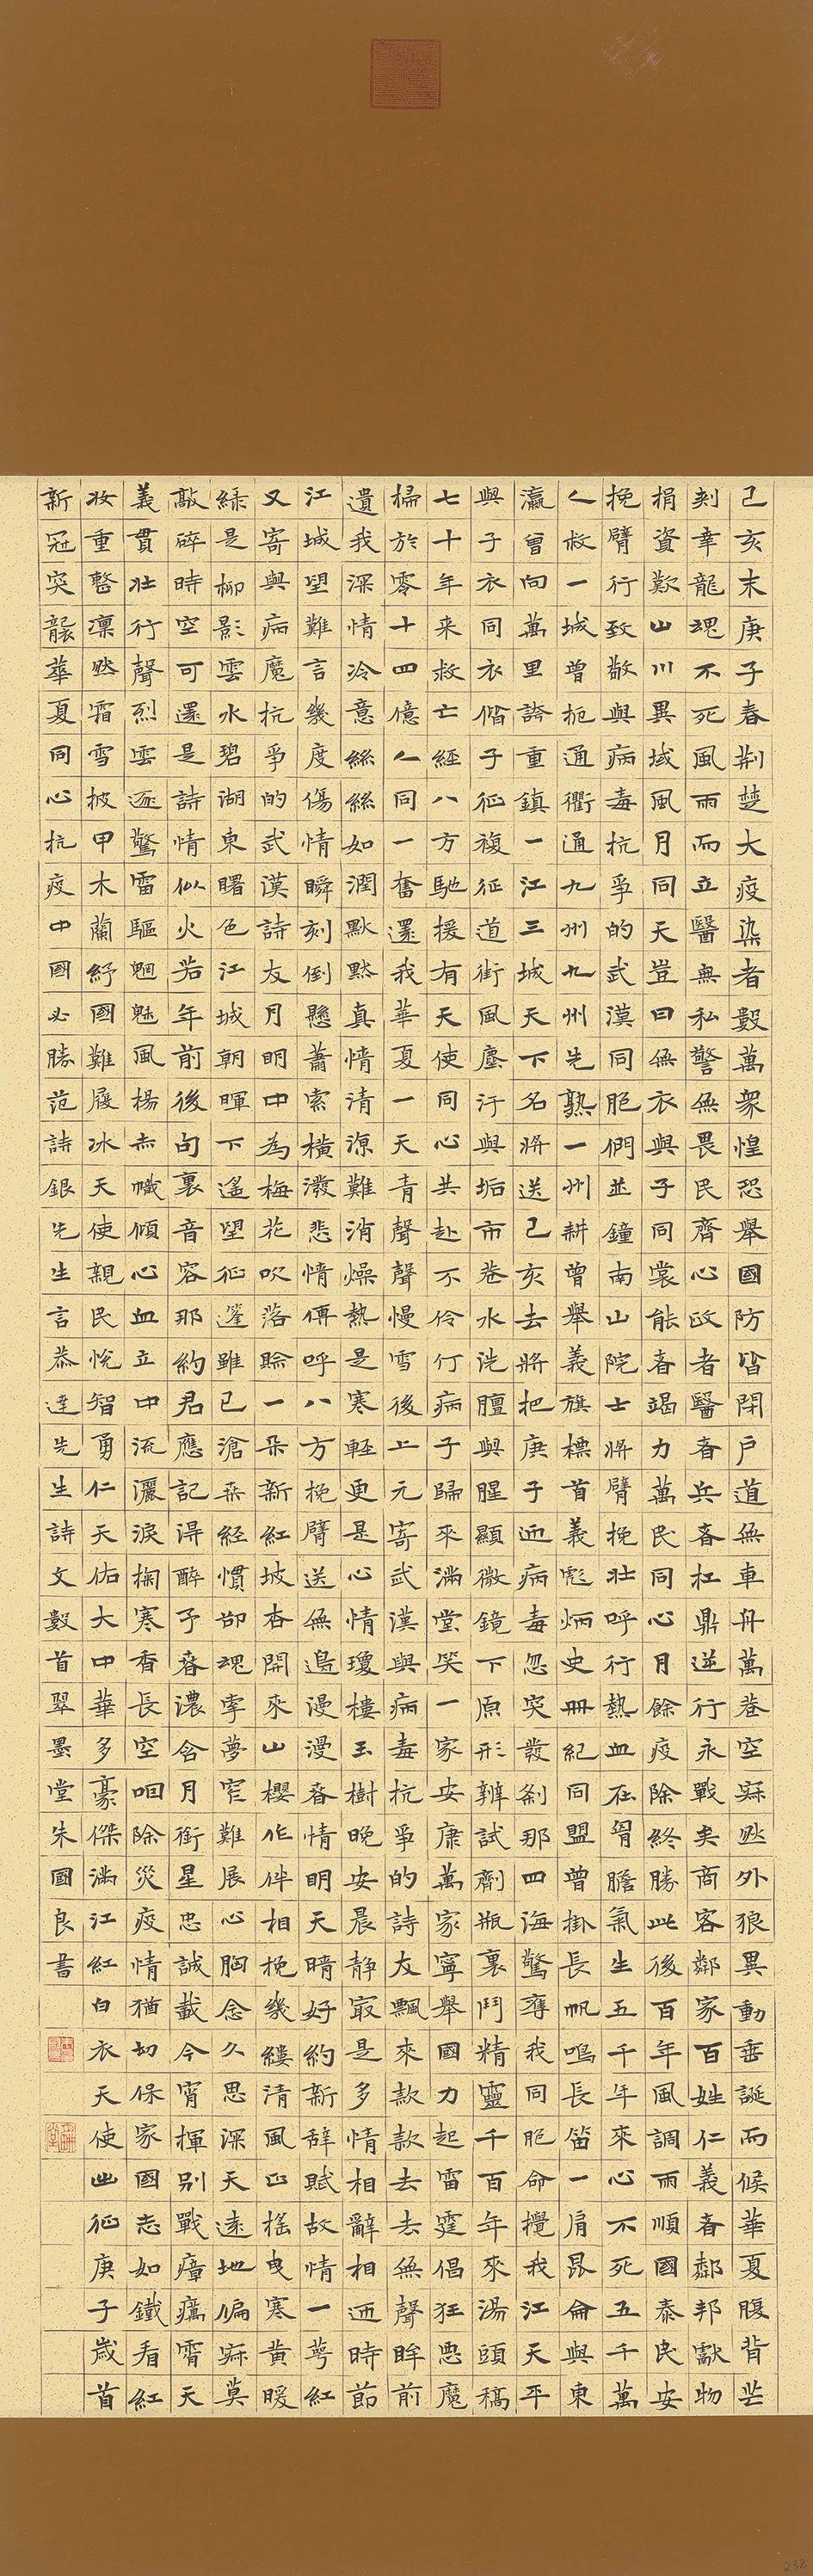 己亥末庚子春荊楚大疫染者數萬衆惶恐舉國防皆閉戶道無車舟萬巷空寂然外狼異動垂誕而候華夏腹背芒
刺幸龍魂不死風雨而立醫無私警無畏民齊心政者醫者兵者杠鼎逆行永戰矣商客鄰家百姓仁義者鄰邦獻物
捐資歎山川異域風月同天豈曰無衣與子同裳能者竭力萬民同心月餘疫除終勝此後百年風調雨順國泰民安
挽臂行致敬與病毒抗爭的武漢同胞們並鐘南山院士將臂挽壯呼行熱血在胷膽氣生五千年來心不死五千萬
人救一城曾扼通衢通九州九州先熟一州耕曾舉義旗標首義彪炳史冊紀同盟曾掛長帆鳴長笛一肩昆侖與東
瀛曾向萬里誇重鎮一江三城天下名將送己亥去將把庚子迎病毒忽突發剎那四海驚奪我同胞命攪我江天平
與子衣同衣偕子征複征道街風塵汙與垢市巷水洗膻與腥顯微鏡下原形辨試劑瓶裏鬥精靈千百年來湯頭稿
七十年來救亡經八方馳援有天使同心共赴不伶仃病子歸來滿堂笑一家安康萬家寧舉國力起雷霆倡狂惡魔
掃於零十四億人同一奮還我華夏一天青聲聲慢雪後上元寄武漢與病毒抗爭的詩友飄來款款去去無聲眸前
遺我深情冷意絲絲如潤默默真情清源難消燥熱是寒輕更是心情瓊樓玉樹晚安晨靜寂是多情相辭相迎時節
江城望難言幾度傷情瞬刻倒懸蕭索橫潑悲情傳呼八方挽臂送無邊漫漫春情明天晴好約新辭賦故情一萼紅
又寄與病魔抗爭的武漢詩友月明中為梅花吹落賒一朵新紅坡杏開來山櫻作伴相挽幾縷清風正搖曳寒黃暖
綠是柳影雲水碧湖東曙色江城朝暉下遙望征篷雖已滄桑經慣卻魂牽夢窄難展心胸念久思深天遠地偏寂莫
敲碎時空可還是詩情似火若年前後句裏音容那約君應記得醉予春濃含月銜星忠誠載今宵揮別戰瘴癘霄天
義貫壯行聲烈雲逐驚雷驅魍魅風楊赤幟傾心血立中流灑淚掬寒香長空咽除災疫情猶切保家國志如鐵看紅
妝重整凜然霜雪披甲木蘭紓國難履冰天使親民悅智勇仁天佑大中華多豪傑滿江紅白衣天使出征庚子歲首
新冠突襲華夏同心抗疫中國必勝范詩銀先生言恭達先生詩文數首翠墨堂朱國良書
238